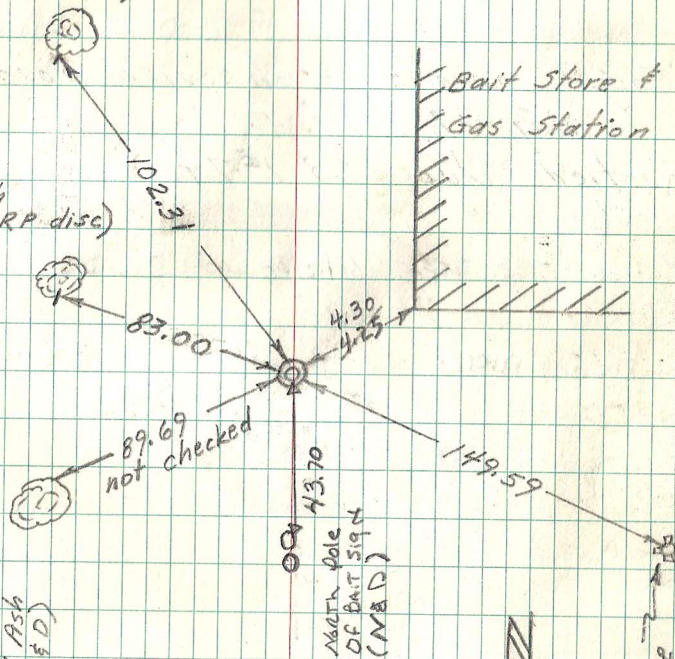 Bait Store &
Gas Station
102.31
RP disc)
83.00
4.30
4.25
89.69
not checked
149.59
43.70
North Pole
Of Bait Sign
(N&D)
Ash
& D)